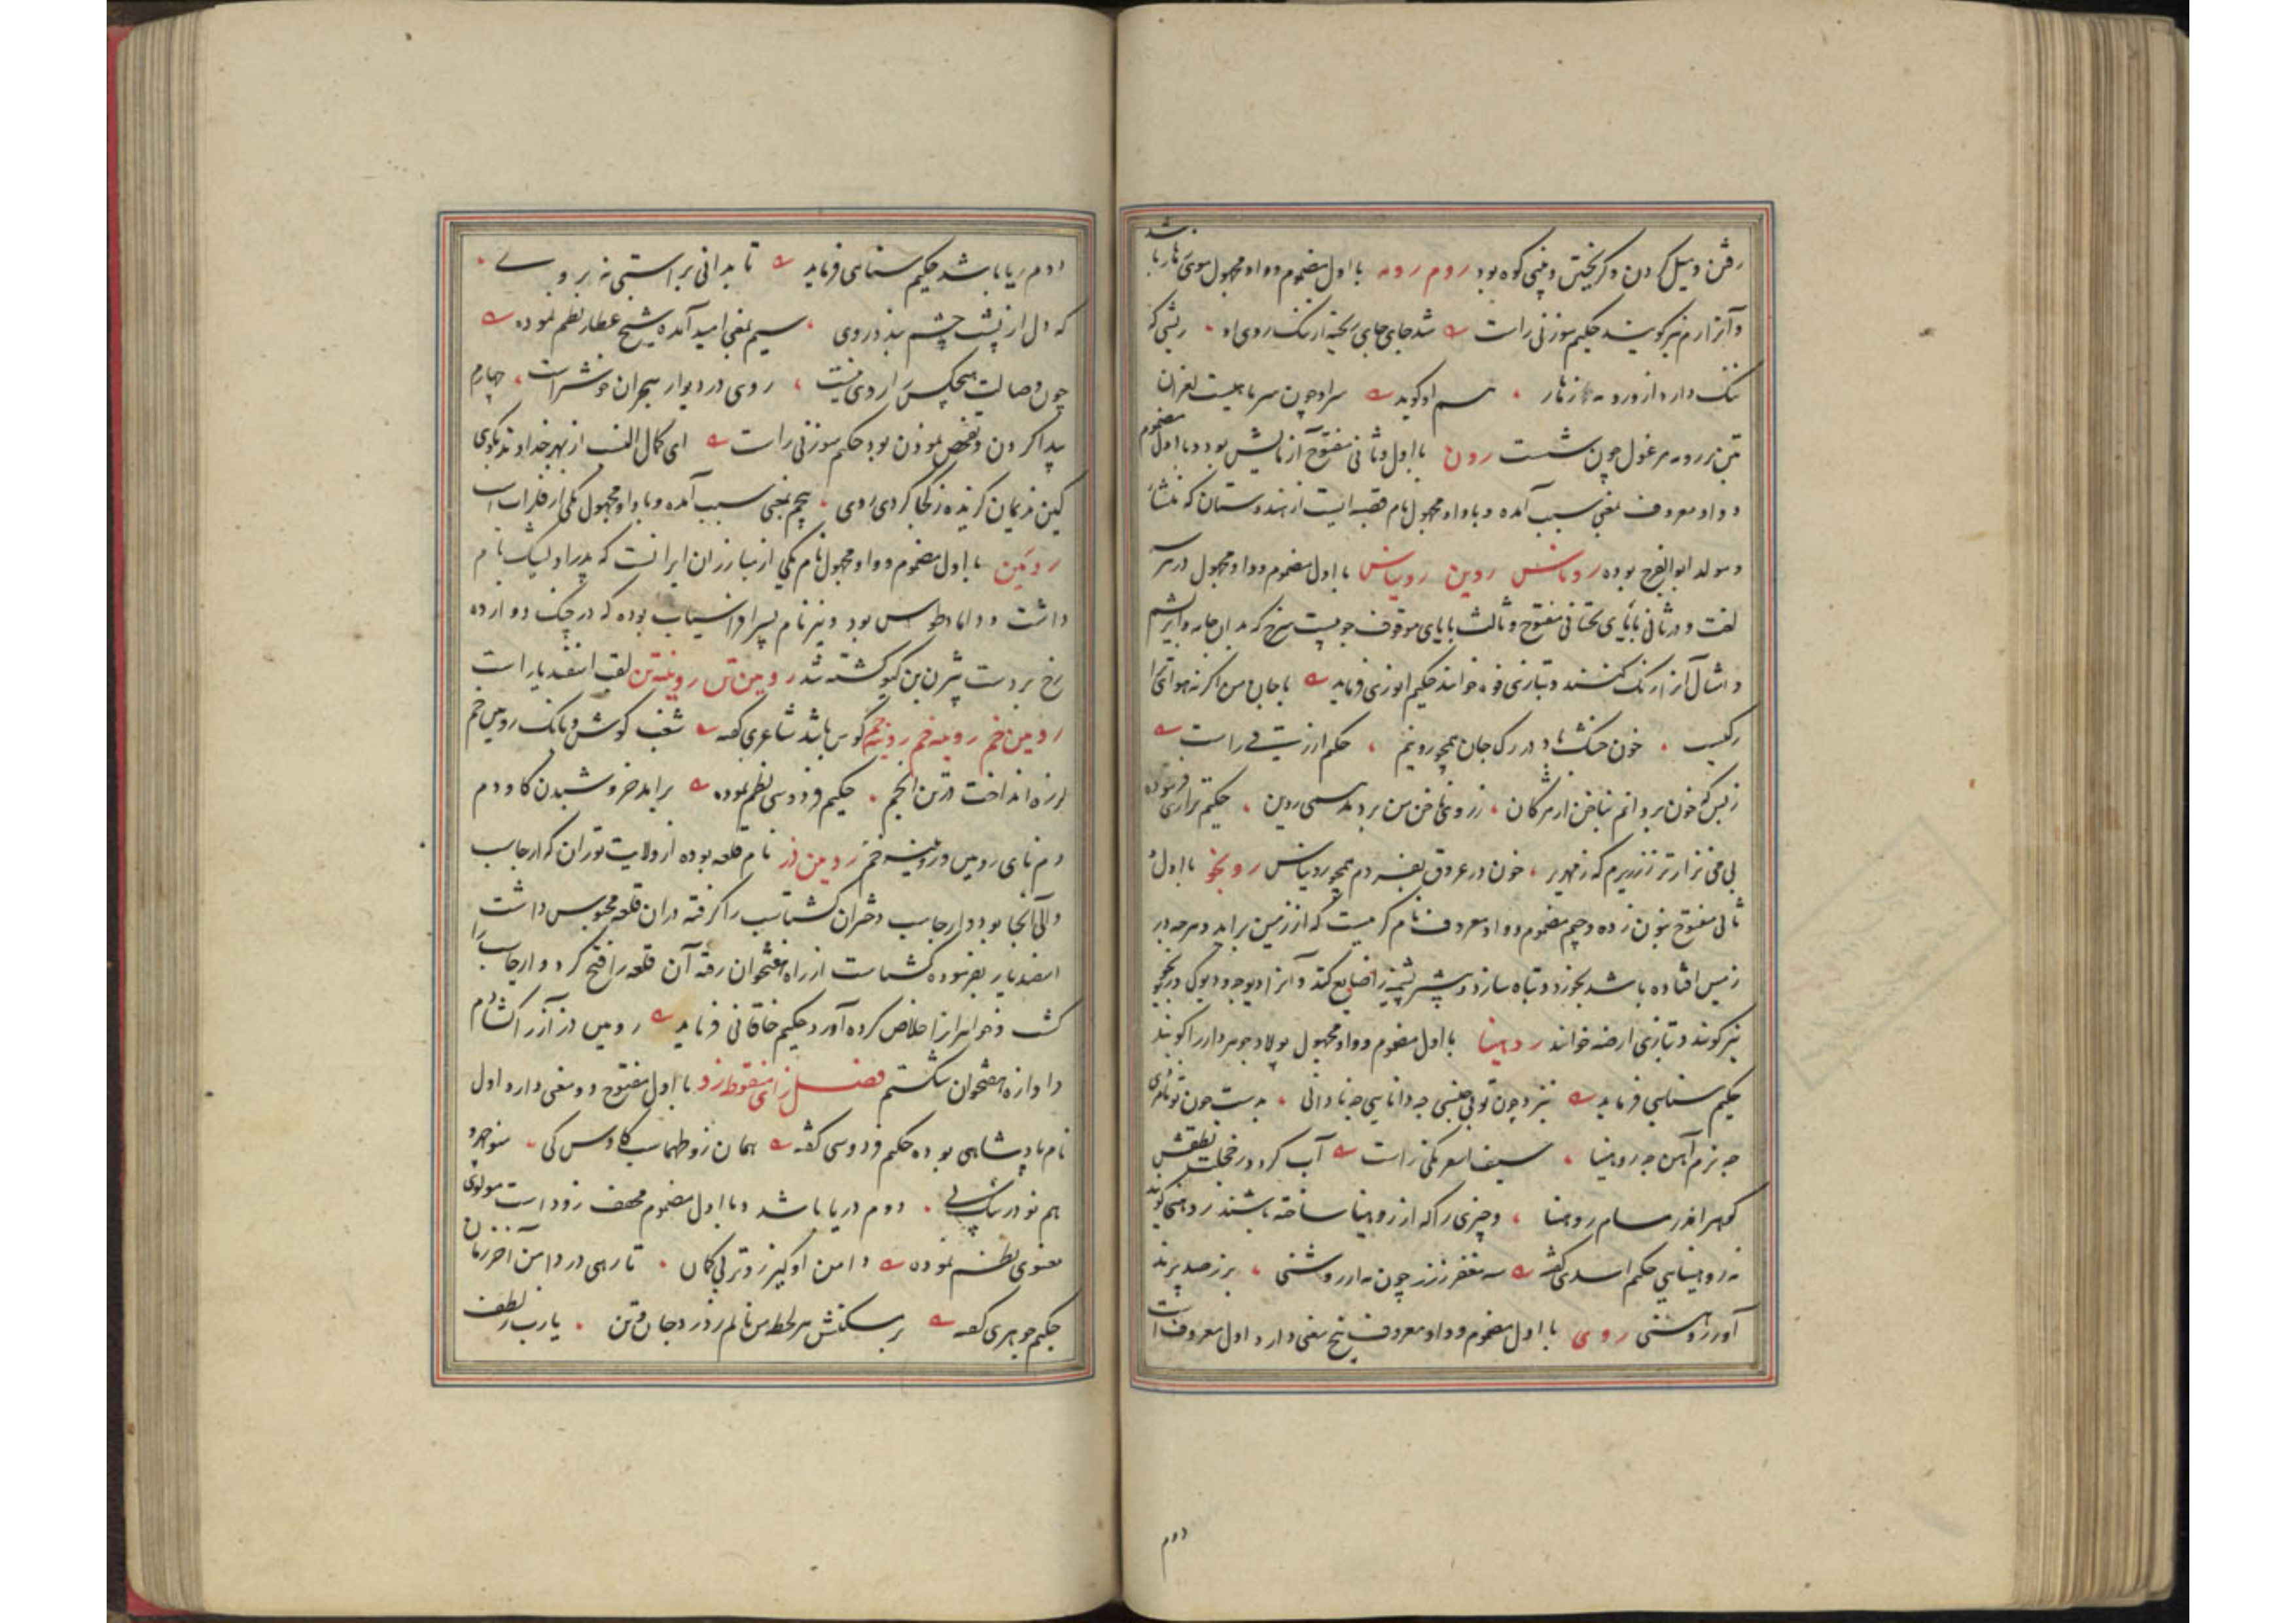 رفتن و میل کردن و گریختن و بینی کوه بود روم رومه با اول مضموم و واو مجهول موی زهار باشد
و آنرا رم نیز گویند حکیم سوزنی راست شد جای جای ریخته از ننگ روی او ریشی که
ننگ دارد از و رومه زهار هم او گوید سر او چون سر
تن بر رومه مرغول چون شست رون با اول و ثانی مفتوح آزمایش بود و با اول مضموم
و واو معروف بمعنی سبب آمده و با واو مجهول نام قصبه ایست از هندوستان که منشا
و مولد ابوالفرج بوده روناس روین رویناس با اول مضموم و واو مجهول در هر سه
لغت و در ثانی با یای تحتانی مفتوح و ثالث با یای موقوف چوبیست سرخ که بدان جامه و ابریشم
و امثال آنرا رنگ کنند و بتازی فوه خوانند حکیم انوری فرماید با جان من اگر نه هوای ترا
رگیست خون خشک باد در رگ جان همچو روینم حکیم ازرقی راست
ز بس که خون بر و انم بناخن از مژگان ز رونمای من بر دمد همی روین حکیم نزاری فرموده
بی می نزارتر ز زریرم که زمهریر خون در عروق بفسردم همچو رویناس رونجو با اول و
ثانی مفتوح بنون زده و جیم مضموم و واو معروف نام کرمیست که از زمین براید و هر چه در
زمین افتاده باشد بخورد و تباه سازد و بیشتر پشمینه را ضایع کند و آنرا دیوچه و دیوک و رنجو
نیز گویند و بتازی ارضه خوانند روهینا با اول مضموم و واو مجهول پولاد جوهردار را گویند
حکیم سنائی فرماید نیز چون تو بی جنسی چه دانایی چه نادانی بدست چون تو نامردی
چه نرم آهن چه روهینا سیف اسفرنگی راست آب کردد در خجلت نطقش
گوهر اندر مسام روهینا و چیزی را که از روهینا ساخته باشند روهنی گویند
نه روهینایی حکیم اسدی گفته سه مغفر ز زر چون مه از روشنی برز صد پرند
آور روهنی روی با اول مضموم و واو معروف پنج معنی دارد اول معروف است
دوم
دوم ریا باشد حکیم سنائی فرماید تا بدانی براستی نه بروی
که دل از پشت چشم بیند روی سیم بمعنی امید آمده شیخ عطار نظم نموده
چون وصالت هیچکس را روی نیست روی در دیوار هجران خوشتر است چهارم
پیدا کردن و تفحص نمودن بود حکیم سوزنی راست ای کمال الدین از بهر خداوند بگوی
کین ندیمان گزیده ز کجا کردی روی پنجم بمعنی سبب آمده و با واو مجهول یکی از فلزات است
رویین با اول مضموم و واو مجهول نام یکی از مبارزان ایرانست که پدر او پشنگ نام
داشت و داماد طوس بود و نیز نام پسر افراسیاب بوده که در جنگ دوازده
رخ بر دست بیژن بن گیو کشته شد رویین تن رویینه تن لقب اسفندیار است
رویین خم رویینه خم روینه خم کوس باشد شاعری گفته شغب کوش و بانک رویین خم
لرزه انداخت در تن انجم حکیم فردوسی نظم نموده برامد خروشیدن گاو دم
دم نای رویین و رویینه خم رویین دز نام قلعه بوده از ولایت توران که ارجاسب
والی آنجا بود و ارجاسب دختران گشتاسب را گرفته دران قلعه محبوس داشت
اسفندیار بفرموده گشتاسب از راه هفتخوان رفته آن قلعه را فتح کرد و ارجاسب را
کشت و خواهرانرا خلاص کرده آورد حکیم خاقانی فرماید رویین دز آز را گشادم
و اوازه هفتخوان شکستم فصل زای منقوطه زو با اول مفتوح دو معنی دارد اول
نام پادشاهی بوده حکیم فردوسی گفته همان زو طهماسب کاوس کی منوچهر و
هم نوذر نیک پی دوم دریا باشد و با اول مضموم مخفف زود است مولوی
معنوی نظم نموده دامن او گیر زوتر بی گمان تا رهی در دامن آخر زمان
حکیم جوهری گفته بر سنکش هر لحظه من نالم ز درد جان و تن یا رب ز لطف